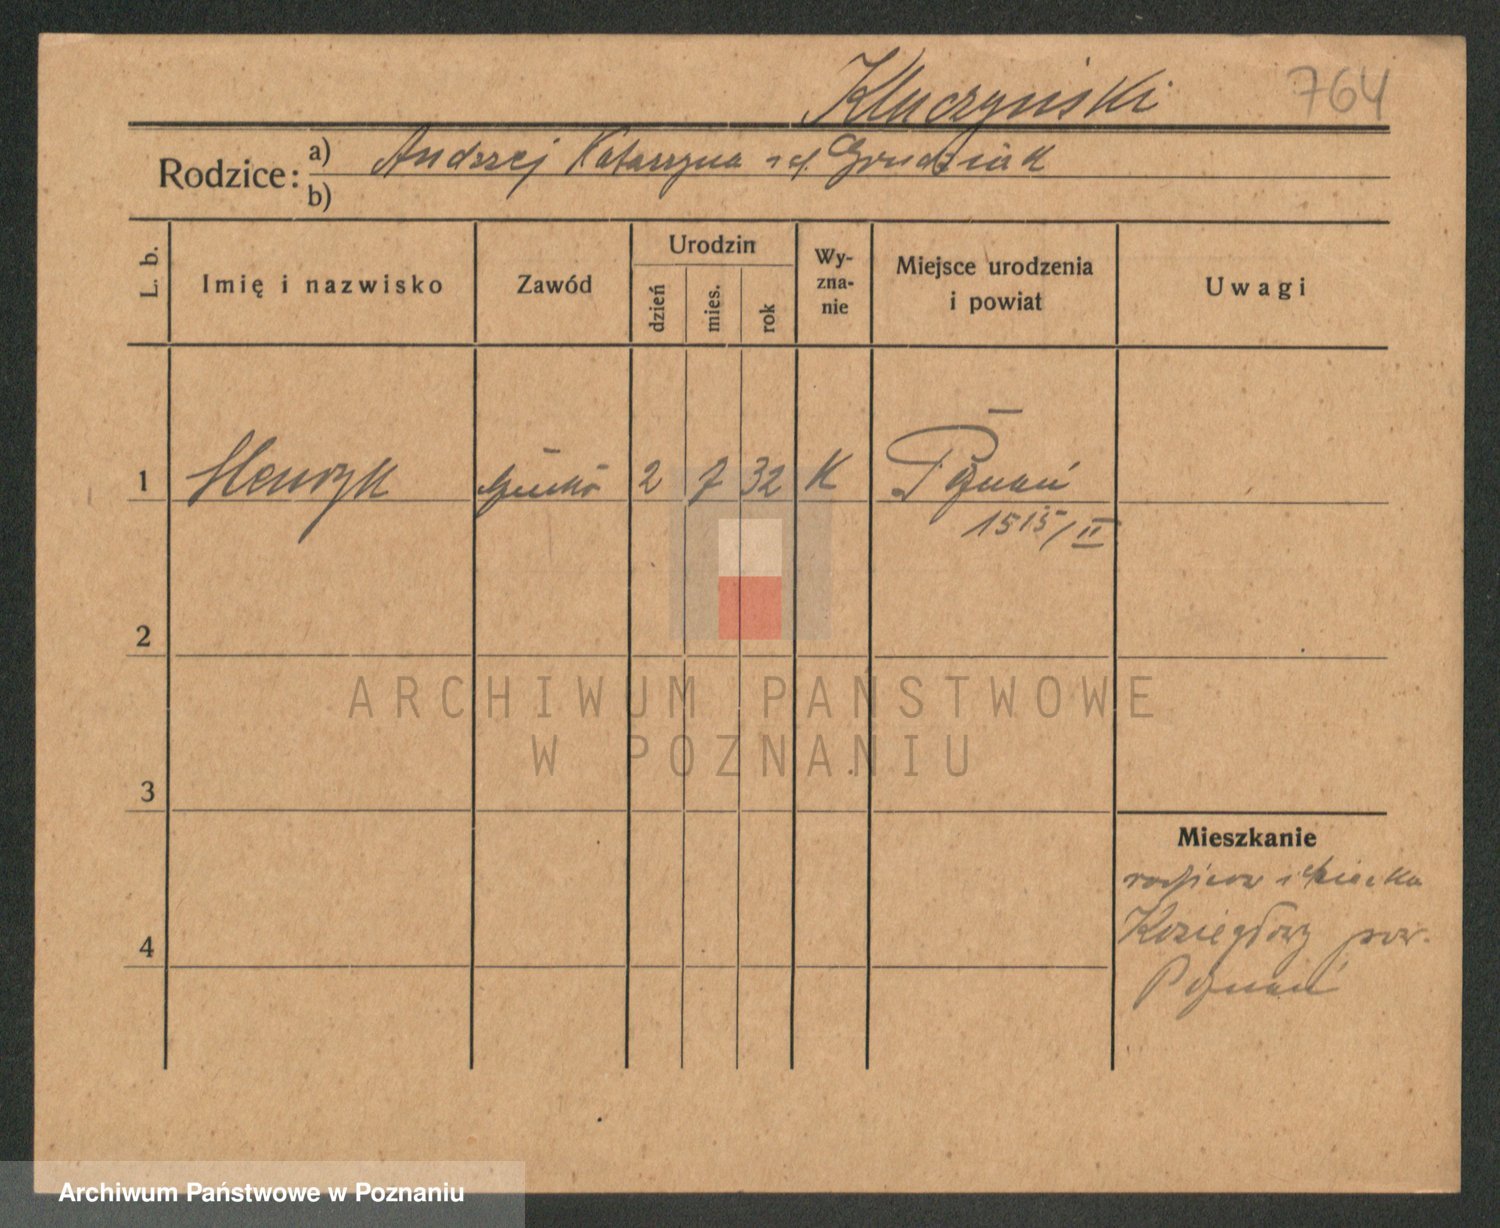 Kluczyński 764
Rodzice:
a) Andrzej Katarzyna Grudziak
b)
L. b.
Imię i nazwisko
Zawód
Urodzin
dzień
mies.
rok
Wy-
zna-
nie
Miejsce urodzenia
i powiat
Uwagi
1 Henryk 2 7 32 K Poznań
1515/II
2
ARCHIWUM PAŃSTWOWE
W POZNANIU
3
Mieszkanie
rodziców i dziecka
4 Koziegłowy pow.
Poznań
Archiwum Państwowe w Poznaniu